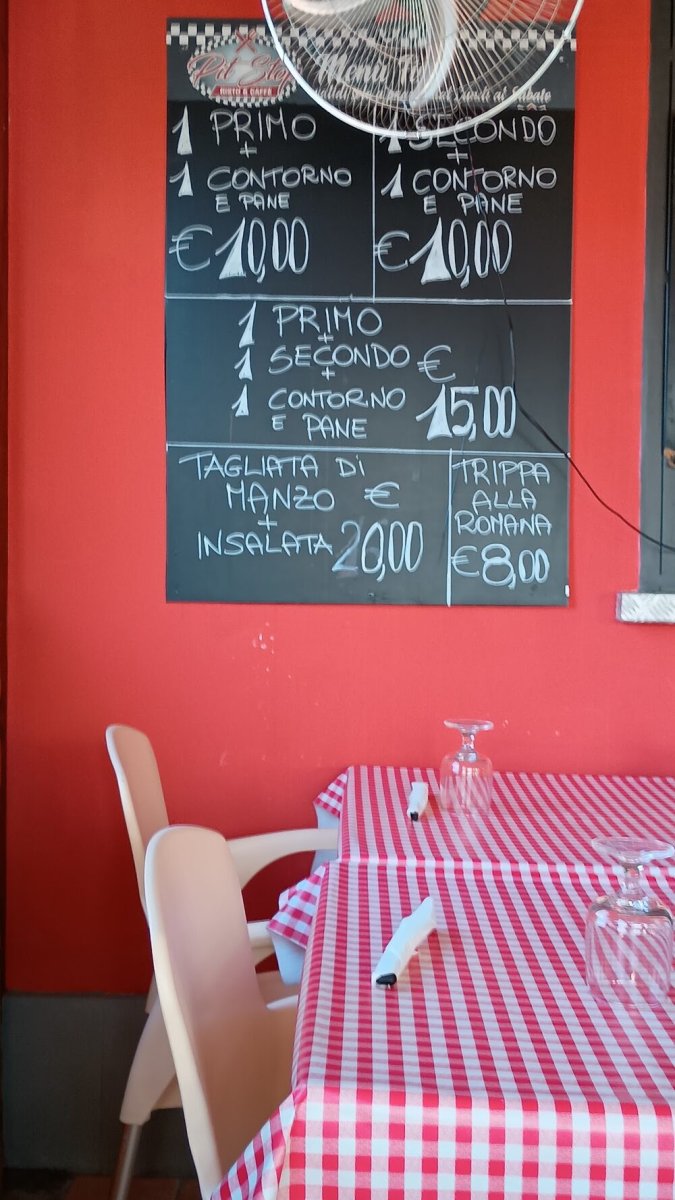 Pit Stop
RISTO & CAFFÈ
Menù
al Sabato
1 PRIMO
+
1 CONTORNO
E PANE
€ 10,00
1 SECONDO
+
1 CONTORNO
E PANE
€ 10,00
1 PRIMO
+
1 SECONDO €
+
1 CONTORNO 15,00
E PANE
TAGLIATA Di
MANZO €
+
INSALATA 20,00
TRIPPA
ALLA
ROMANA
€ 8,00